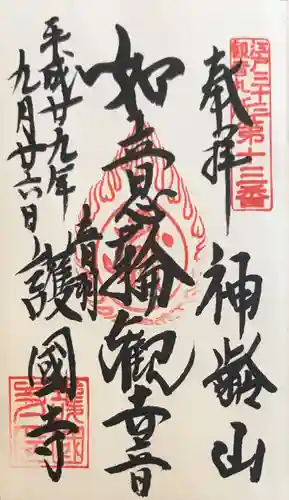 江戸三十三ヶ所
観音札所第十三番
奉拝
神齢山
如意輪観音
平成廿九年
九月廿六日
護國寺